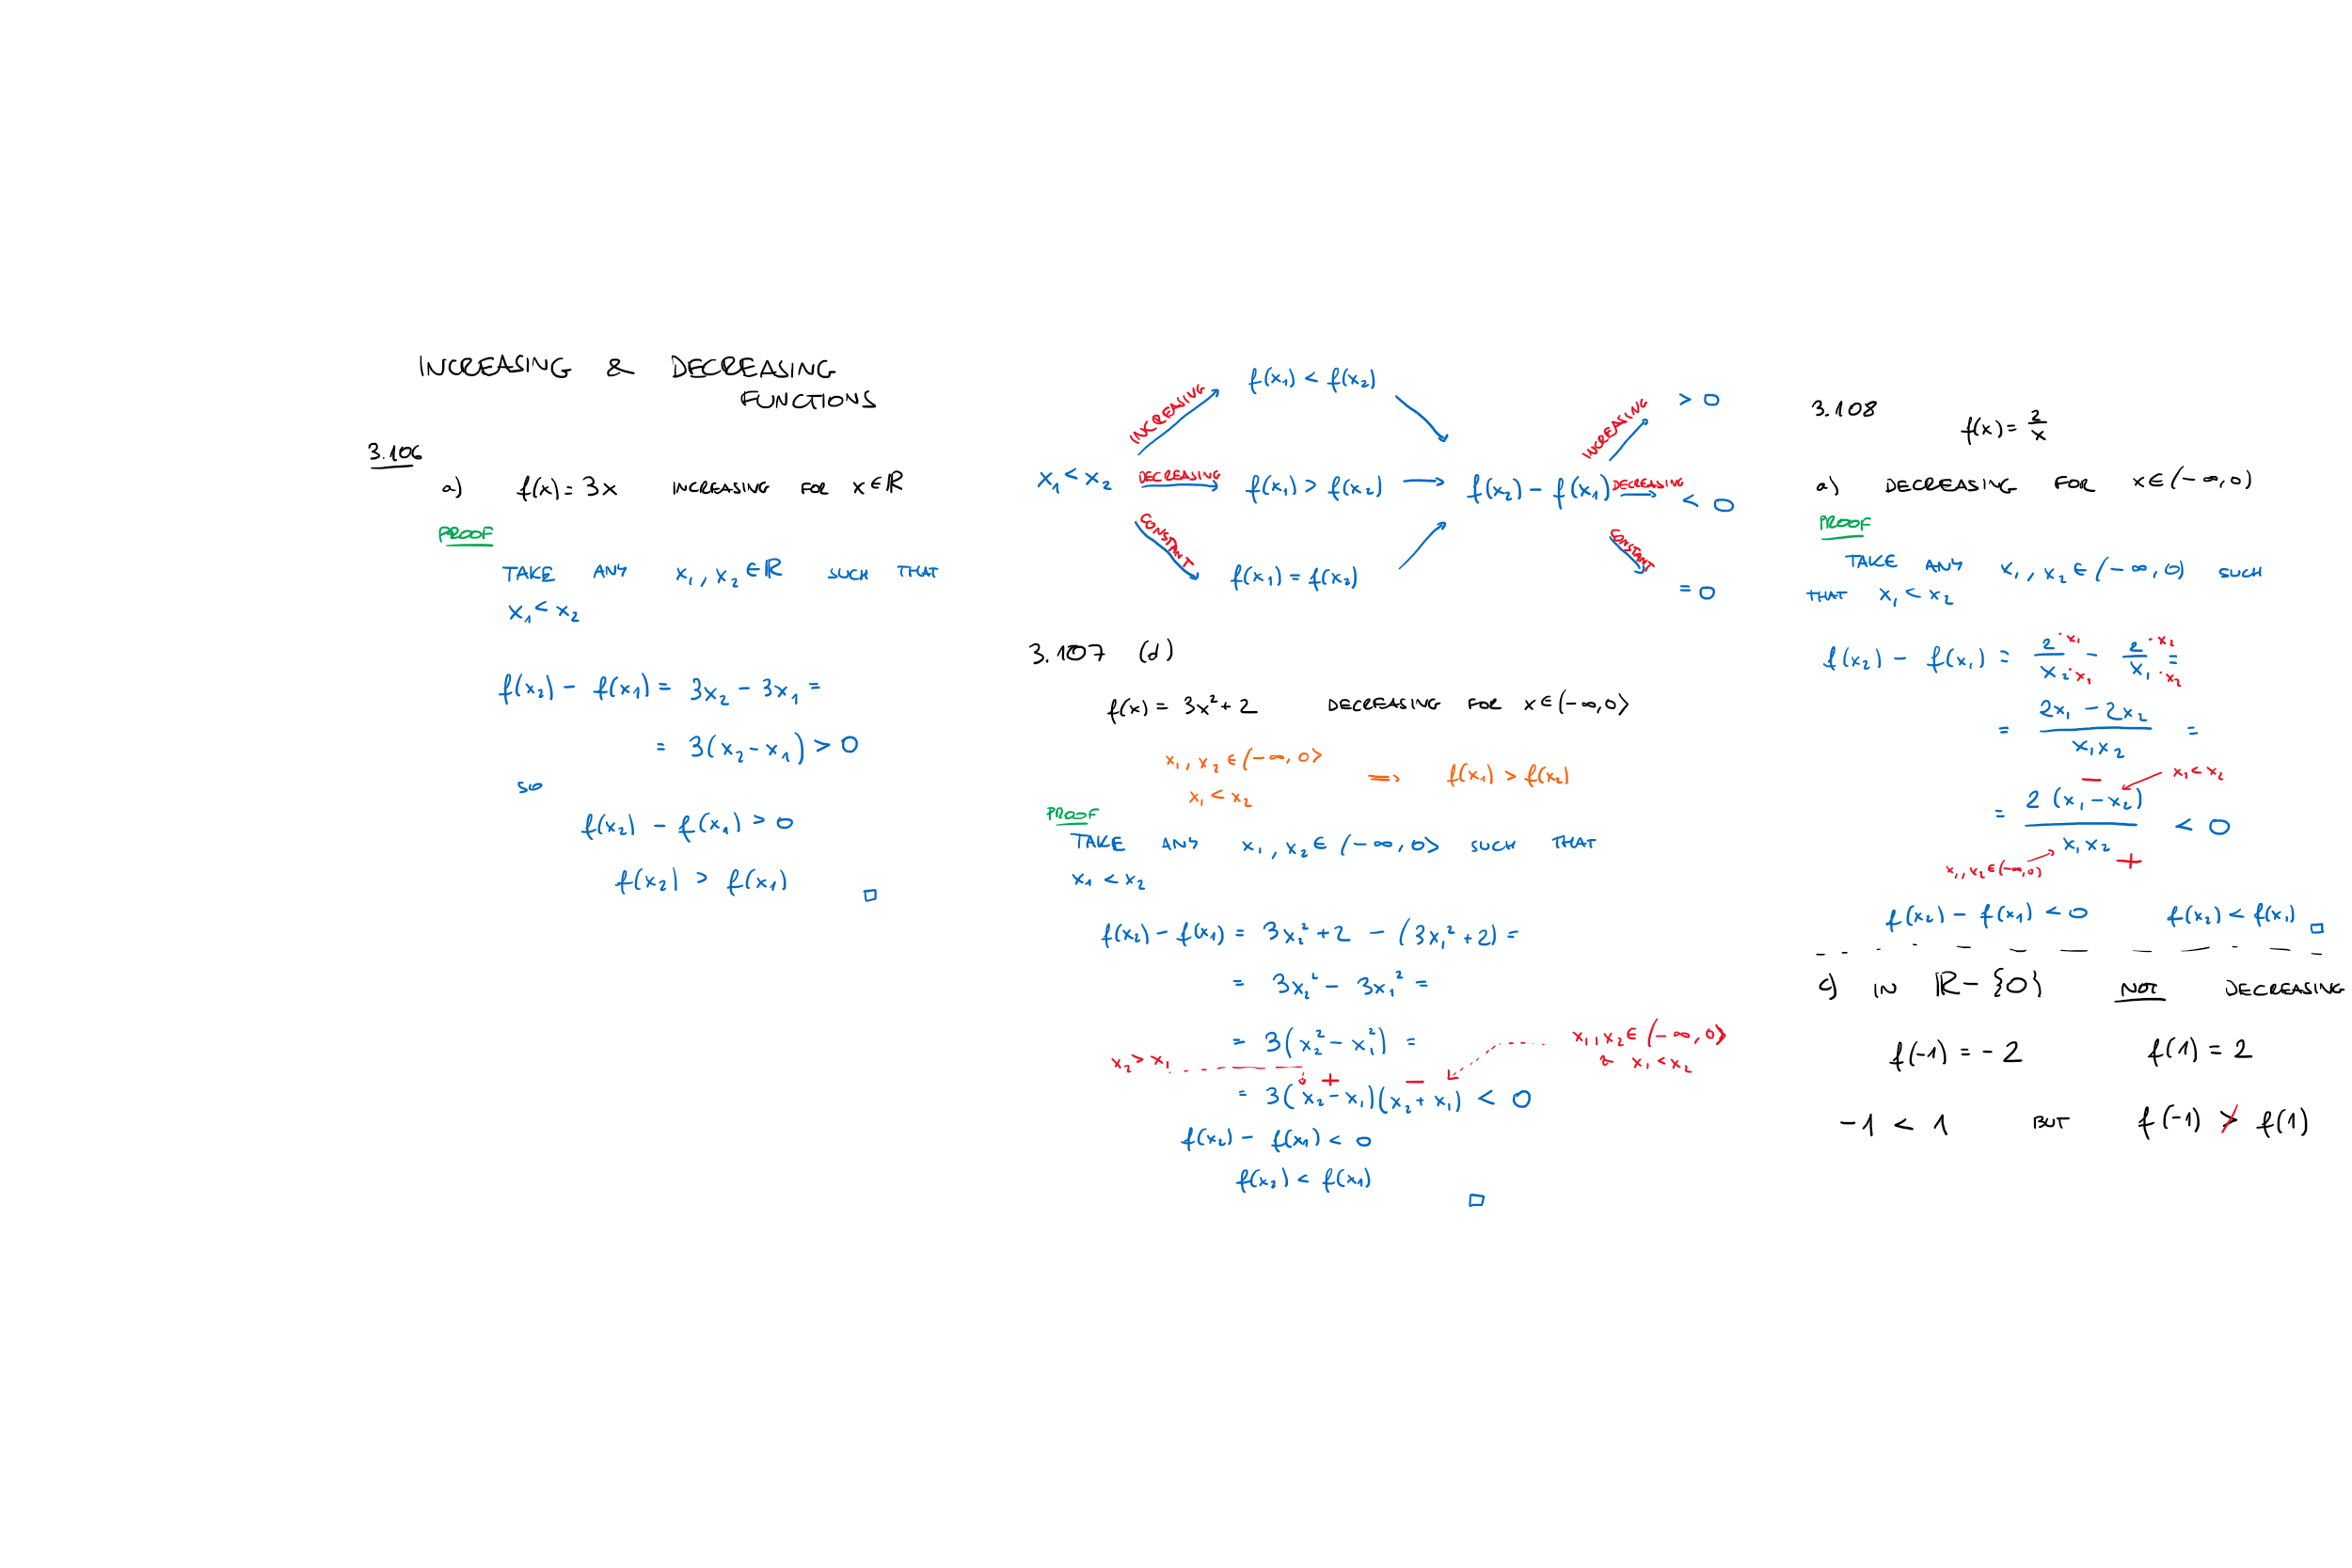 INCREASING & DECREASING
FUNCTIONS
3.106
a) f(x) = 3x INCREASING FOR x∈ℝ
PROOF
TAKE ANY x₁, x₂ ∈ ℝ SUCH THAT
x₁ < x₂
f(x₂) − f(x₁) = 3x₂ − 3x₁ =
= 3(x₂ − x₁) > 0
SO
f(x₂) − f(x₁) > 0
f(x₂) > f(x₁) □
x₁ < x₂
INCREASING f(x₁) < f(x₂)
DECREASING f(x₁) > f(x₂)
CONSTANT f(x₁) = f(x₂)
f(x₂) − f(x₁)
INCREASING > 0
DECREASING < 0
CONSTANT = 0
3.107 (d)
f(x) = 3x² + 2 DECREASING FOR x∈(−∞,0⟩
x₁, x₂ ∈ (−∞, 0⟩ ⟹ f(x₁) > f(x₂)
x₁ < x₂
PROOF
TAKE ANY x₁, x₂ ∈ (−∞, 0⟩ SUCH THAT
x₁ < x₂
f(x₂) − f(x₁) = 3x₂² + 2 − (3x₁² + 2) =
= 3x₂² − 3x₁² =
= 3(x₂² − x₁²) =
x₂ > x₁ + − x₁, x₂ ∈ (−∞, 0⟩
& x₁ < x₂
= 3(x₂ − x₁)(x₂ + x₁) < 0
f(x₂) − f(x₁) < 0
f(x₂) < f(x₁)
□
3.108 f(x) = 2/x
a) DECREASING FOR x∈(−∞,0)
PROOF
TAKE ANY x₁, x₂ ∈ (−∞, 0) SUCH
THAT x₁ < x₂
f(x₂) − f(x₁) = 2·x₁/x₂·x₁ − 2·x₂/x₁·x₂ =
= 2x₁ − 2x₂/x₁x₂ =
− x₁ < x₂
= 2(x₁ − x₂)/x₁x₂ < 0
x₁, x₂ ∈ (−∞, 0) +
f(x₂) − f(x₁) < 0 f(x₂) < f(x₁) □
c) IN ℝ − {0} NOT DECREASING
f(−1) = −2 f(1) = 2
−1 < 1 BUT f(−1) ≯ f(1)